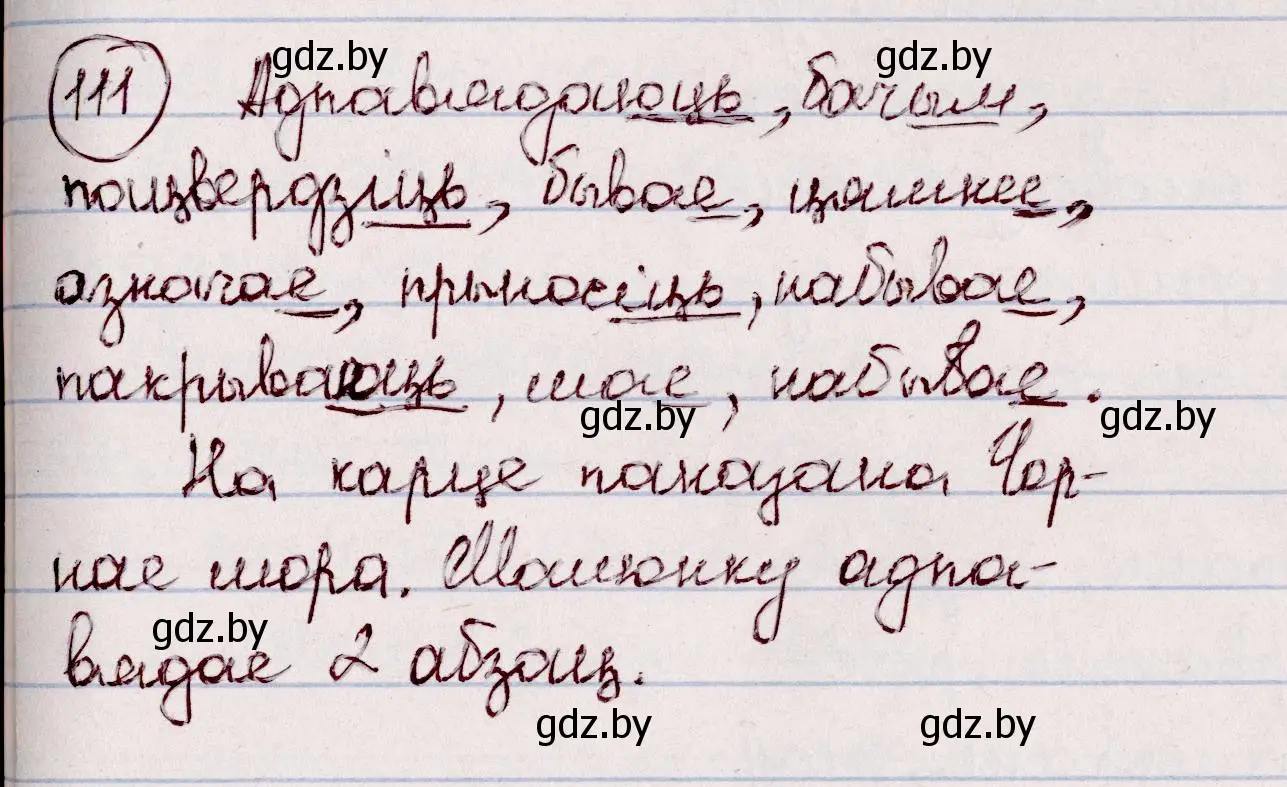 gdz.by gdz.by
111 Адпавядаюць, бачым,
пацвердзіць, бывае, цямнее,
азначае, прыносіць, набывае,
пакрываюць, мае, набывае.
gdz.by gdz.by
На карце паказана Чор-
нае мора. Малюнку адпа-
gdz.by
вядае 2 абзац.
gdz.by gdz.by